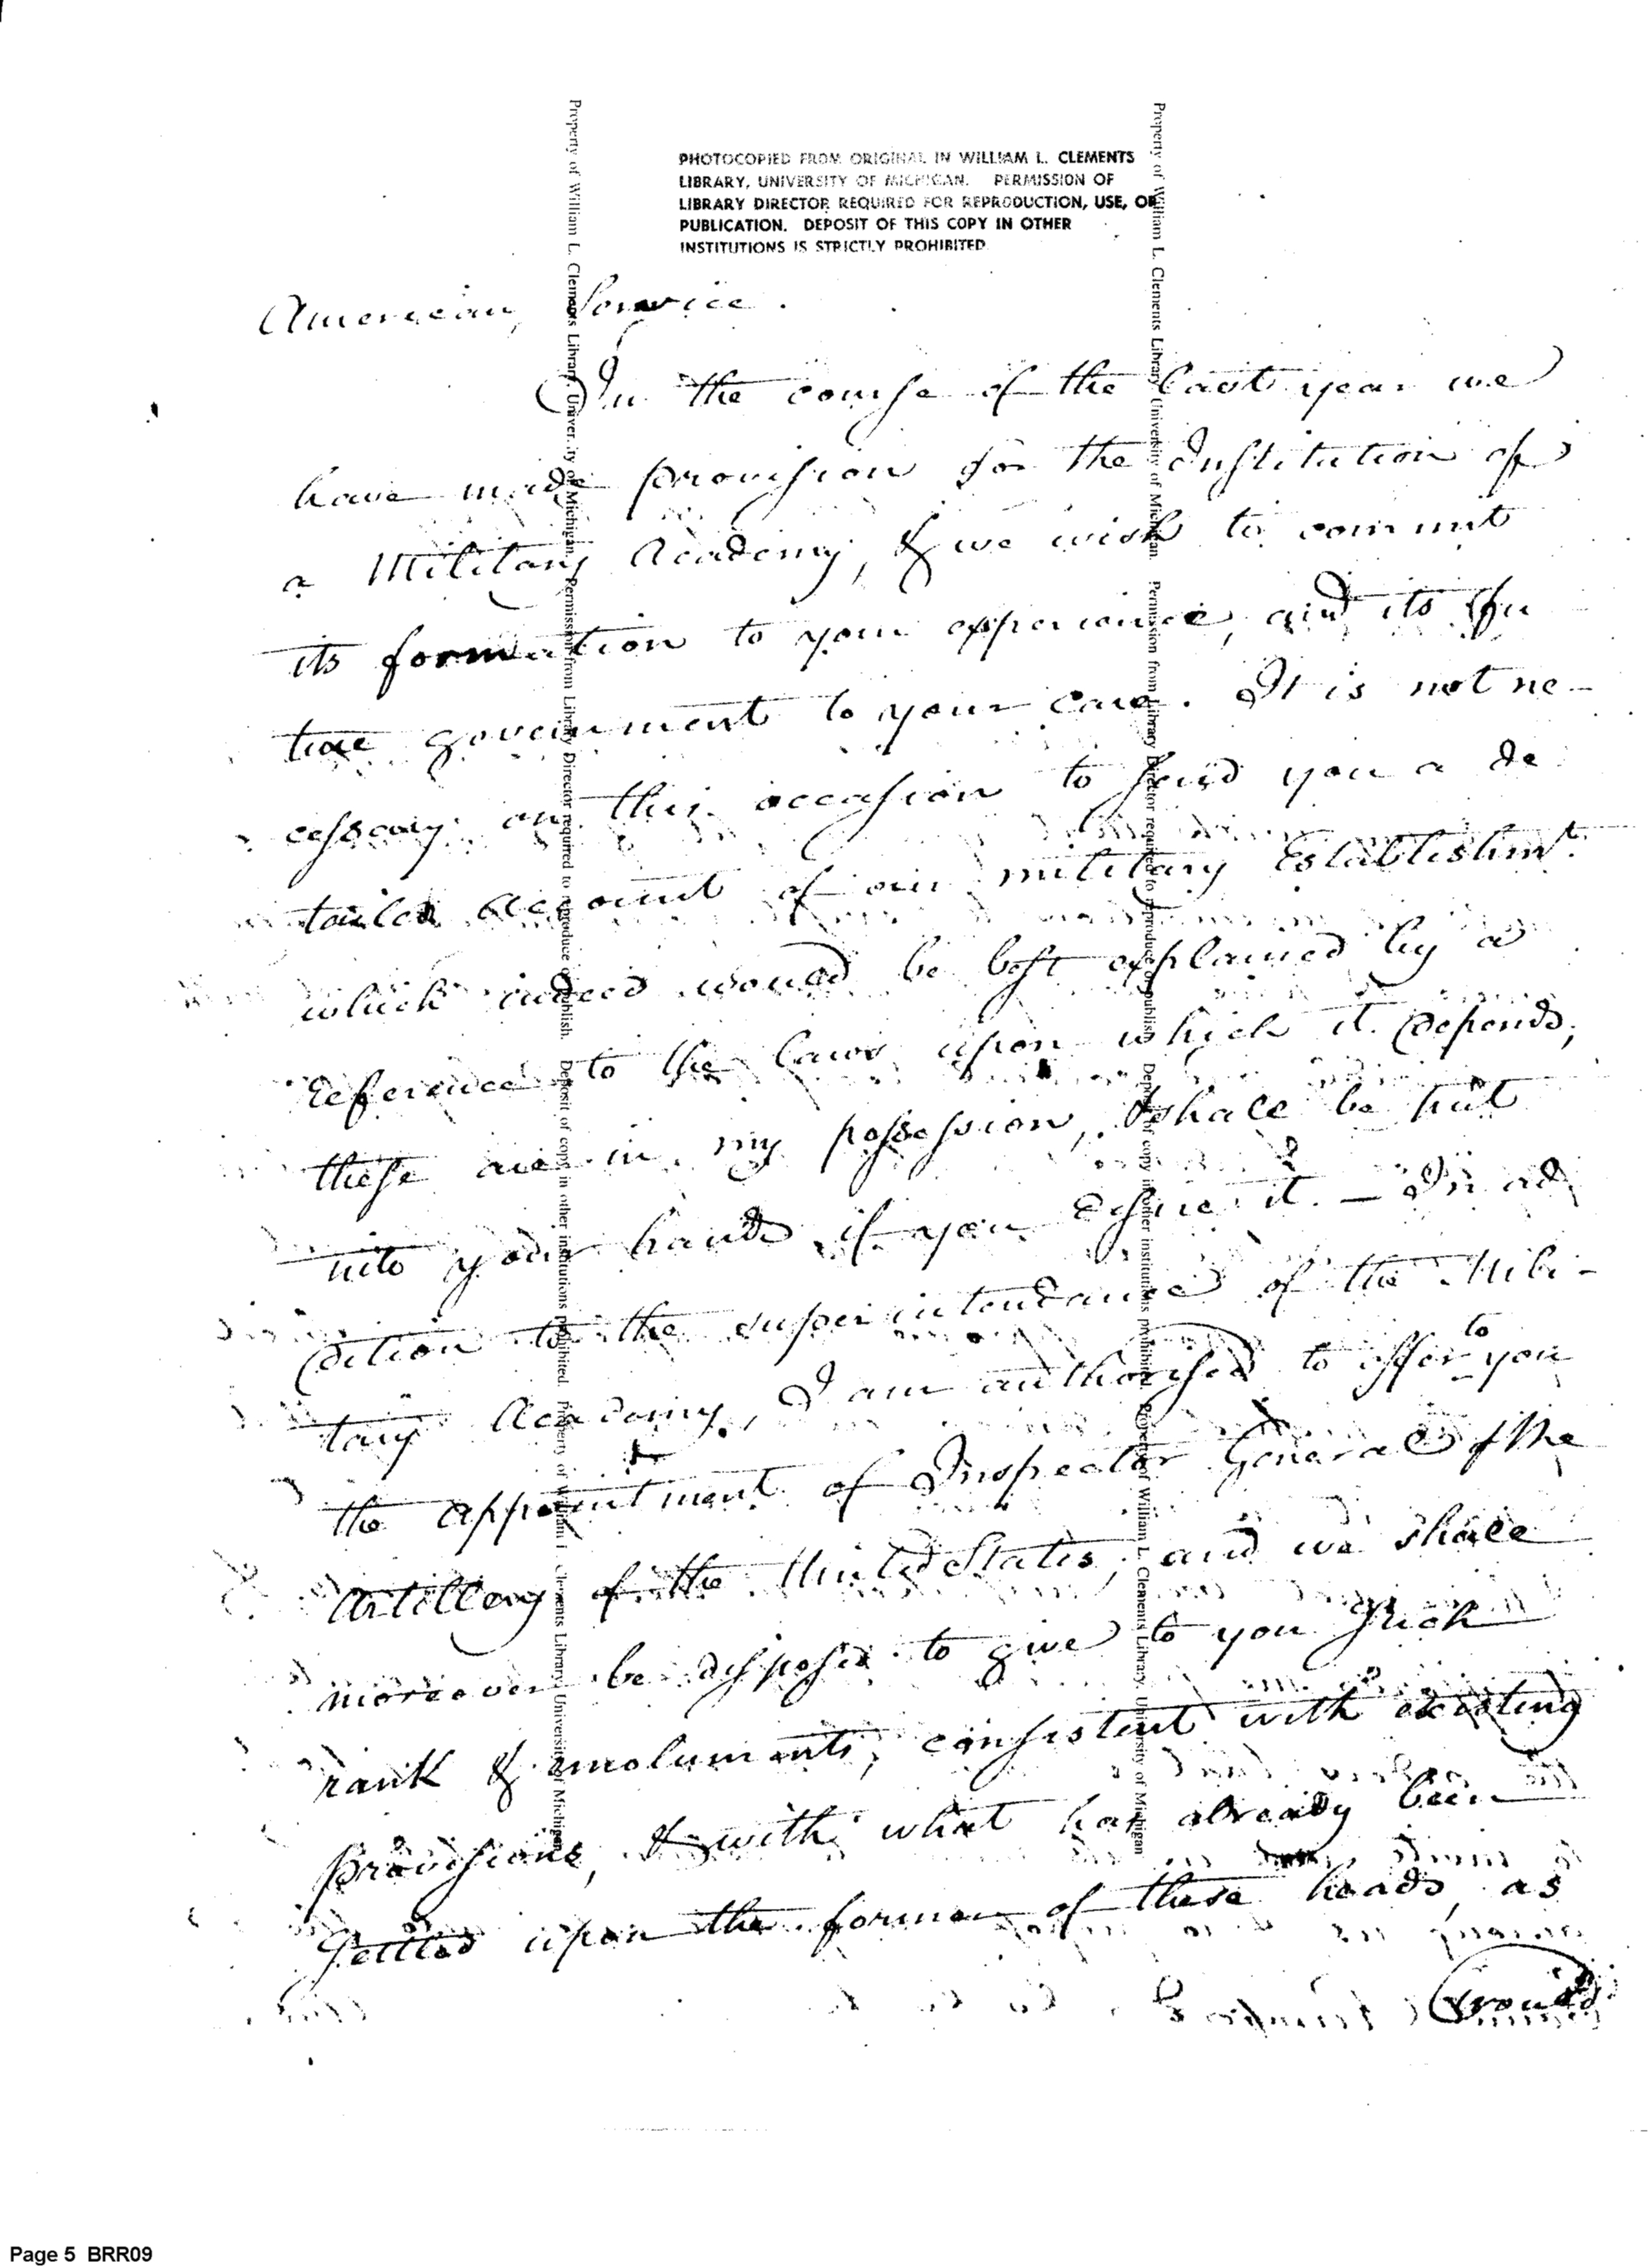 PHOTOCOPIED FROM ORIGINAL IN WILLIAM L. CLEMENTS
LIBRARY, UNIVERSITY OF MICHIGAN. PERMISSION OF
LIBRARY DIRECTOR REQUIRED FOR REPRODUCTION, USE, OR
PUBLICATION. DEPOSIT OF THIS COPY IN OTHER
INSTITUTIONS IS STRICTLY PROHIBITED
Property of William L. Clements Library, University of Michigan. Permission from Library Director required to reproduce or publish. Deposit of copy in other institutions prohibited. Property of William L. Clements Library, University of Michigan
Property of William L. Clements Library, University of Michigan. Permission from Library Director required to reproduce or publish. Deposit of copy in other institutions prohibited. Property of William L. Clements Library, University of Michigan
American Service.
In the course of the last year we
have made provision for the Institution of
a Military Academy, & we wish to commit
its formation to your experience, and its fu
ture government to your care. It is not ne-
cessary on this occasion to send you a de
tailed account of our military Establishmt.
which indeed would be best explained by a
reference to the laws upon which it depends,
these are in my possession, & shall be put
into your hands if you desire it. — In ad
dition to the superintendance of the Mili-
tary Academy, I am authorised to offer to you
the appointment of Inspector General of the
Artillery of the United States, and we shall
moreover be disposed to give to you such
rank & emoluments, consistent with existing
provisions, & with what has already been
settled upon the former of these heads, as
would
Page 5 BRR09